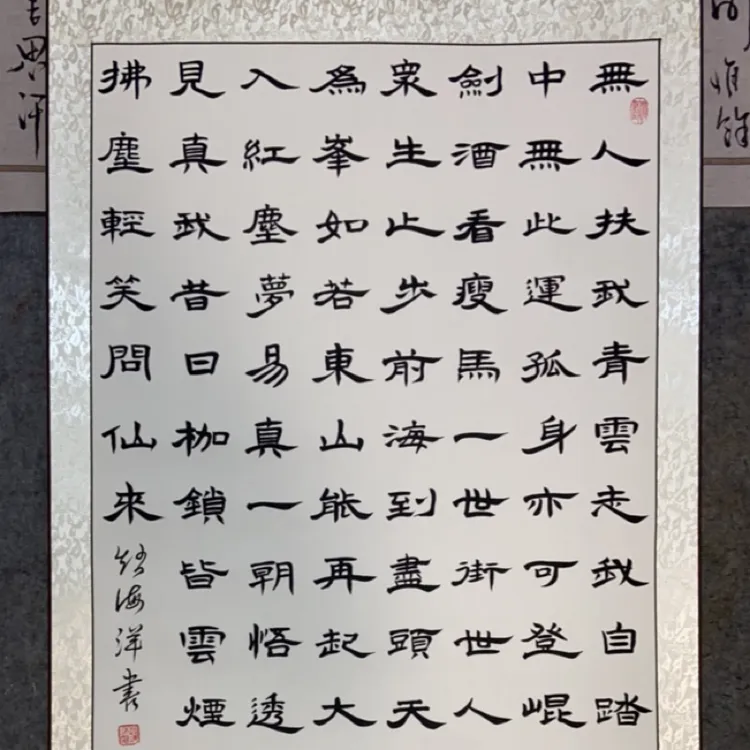 無人扶我青雲志我自踏
中無此運孤身亦可登崐
劍酒看瘦馬一世街世人
衆生止步前海到盡頭天
爲峯如若東山能再起大
入紅塵夢易真一朝悟透
見真我昔日枷鎖皆雲煙
拂塵輕笑問仙來
趙海洋書
惟餘